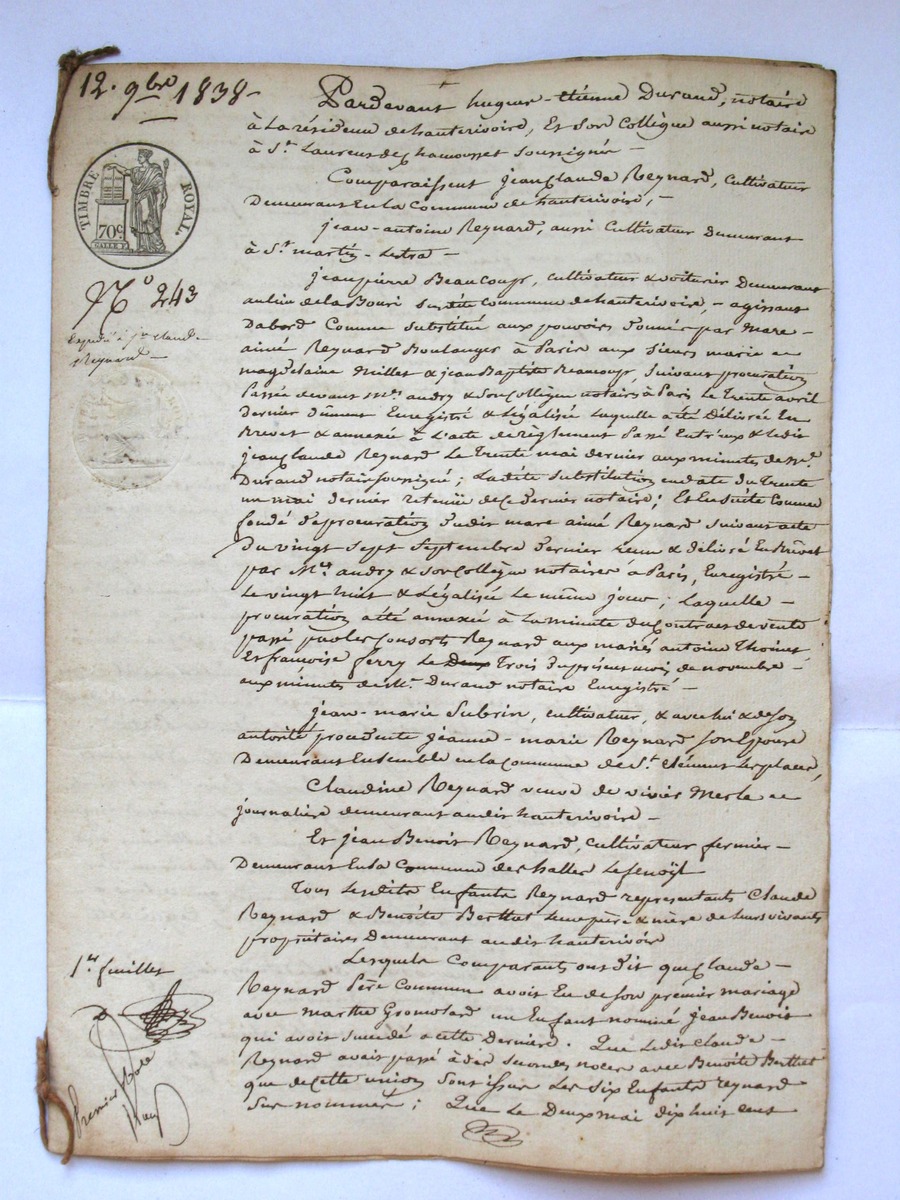 12. 9bre 1838 -
Pardevant hugues-etienne Durand, notaire
à la résidence de hauterivoire, Et Son Collègue aussi notaire
à St. Laurent de Chamousset soussignés -
Comparaissent jean Claude Reynard, Cultivateur
Demeurant En la Commune de hauterivoire, -
jean-antoine Reynard, aussi Cultivateur Demeurant
à St. martin-Lestra -
TIMBRE ROYAL
70c
No 243
Expédié à jn Claude
Reynard -
jean pierre Beaucoup, cultivateur & voiturier Demeurant
au lieu de la Bouri Susdite Commune de hauterivoire, - agissant
Dabord Comme Substitué aux pouvoirs donnés par Marc-
aimé Reynard Boulanger à Paris aux Sieurs marie
magdelaine Millet & jean Baptiste Beaucoup, Suivant procuration
Passée devant Mes. audry & Son Collègue notaires à Paris Le Trente avril
Dernier Enregistré & Légalisée Laquelle a été Délivrée En
Brevet & annexée à L'acte de règlement Passé Entr'eux & Ledit
jean Claude Reynard Le Trente mai dernier aux minutes de Me.
Durand notaire soussigné; Ladite Substitution en date du Trente
un mai dernier retenue de ce dernier notaire; Et En Suite Comme
fondé de procuration dudit marc aimé Reynard Suivant acte
Du vingt Sept Septembre dernier reçu & délivré En Brevet
par Mes. audry & Son Collègue notaires à Paris, Enregistré -
Le vingt huit & Légalisée Le même jour; Laquelle -
procuration a été annexée à La minute du Contrat de vente
passé par les Consorts Reynard aux mariés antoine Thoinet
Et françoise ferry Le Deux Trois du présent mois de novembre -
aux minutes de Me. Durand notaire Enregistré -
jean-marie Subrin, cultivateur, & avec lui & de son
autorité procédente jeanne-marie Reynard Son Epouse
Demeurant Ensemble en la Commune de St. Clément Les places,
Claudine Reynard veuve de vivier Merle
journalière demeurant audit hauterivoire -
Et jean Benoit Reynard, cultivateur fermier -
Demeurant En la Commune de challes
Tous Lesdits Enfants Reynard représentants Claude
Reynard & Benoîte Berthet Leurs père & mère de leurs vivants
propriétaires Demeurant audit hauterivoir
Lesquels Comparants ont dit que Claude -
Reynard Père Commun avoit Eu de Son premier mariage
avec marthe Gromolard un Enfant nommé Jean Benoit
qui avoit succédé a cette Dernière. Que Ledit Claude -
Reynard avait passé à des Secondes noces avec Benoîte Berthet
que de cette union Sont issus Les Six Enfants reynard
Sus nommés; Que Le Deux mai dix huit cent
1er feuillet
D
Premier Role